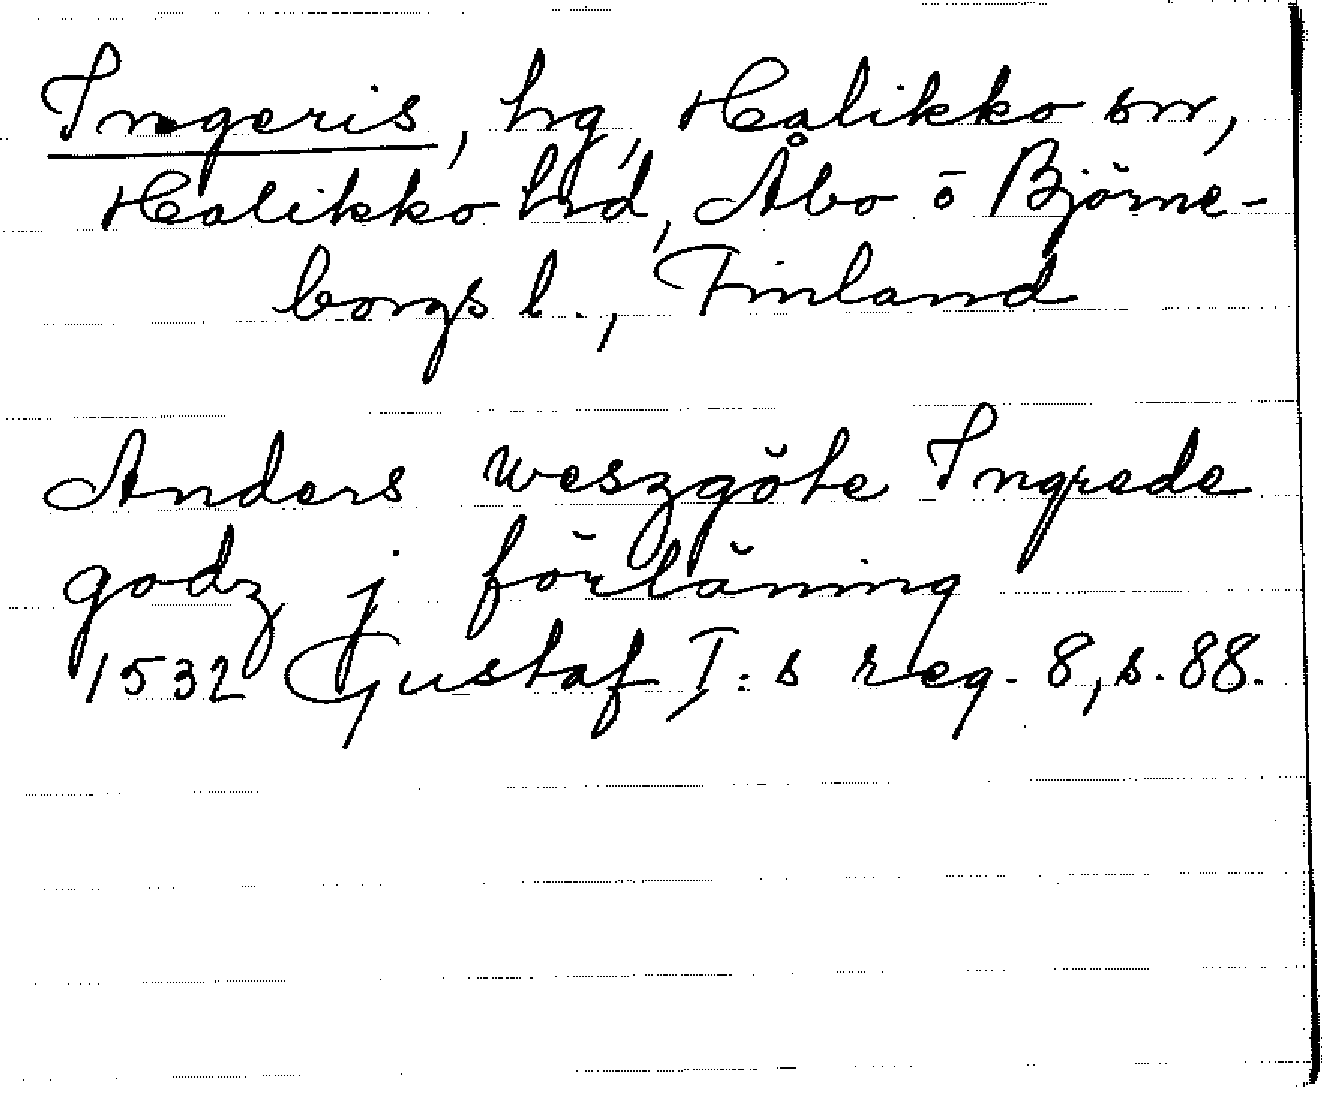 Ingeris, hg, Halikko sn,
Halikko hd, Åbo o Björne-
borgs l., Finland
Anders weszgöte Ingrede
godz j förläning
1532 Gustaf I:s reg. 8, s. 88.